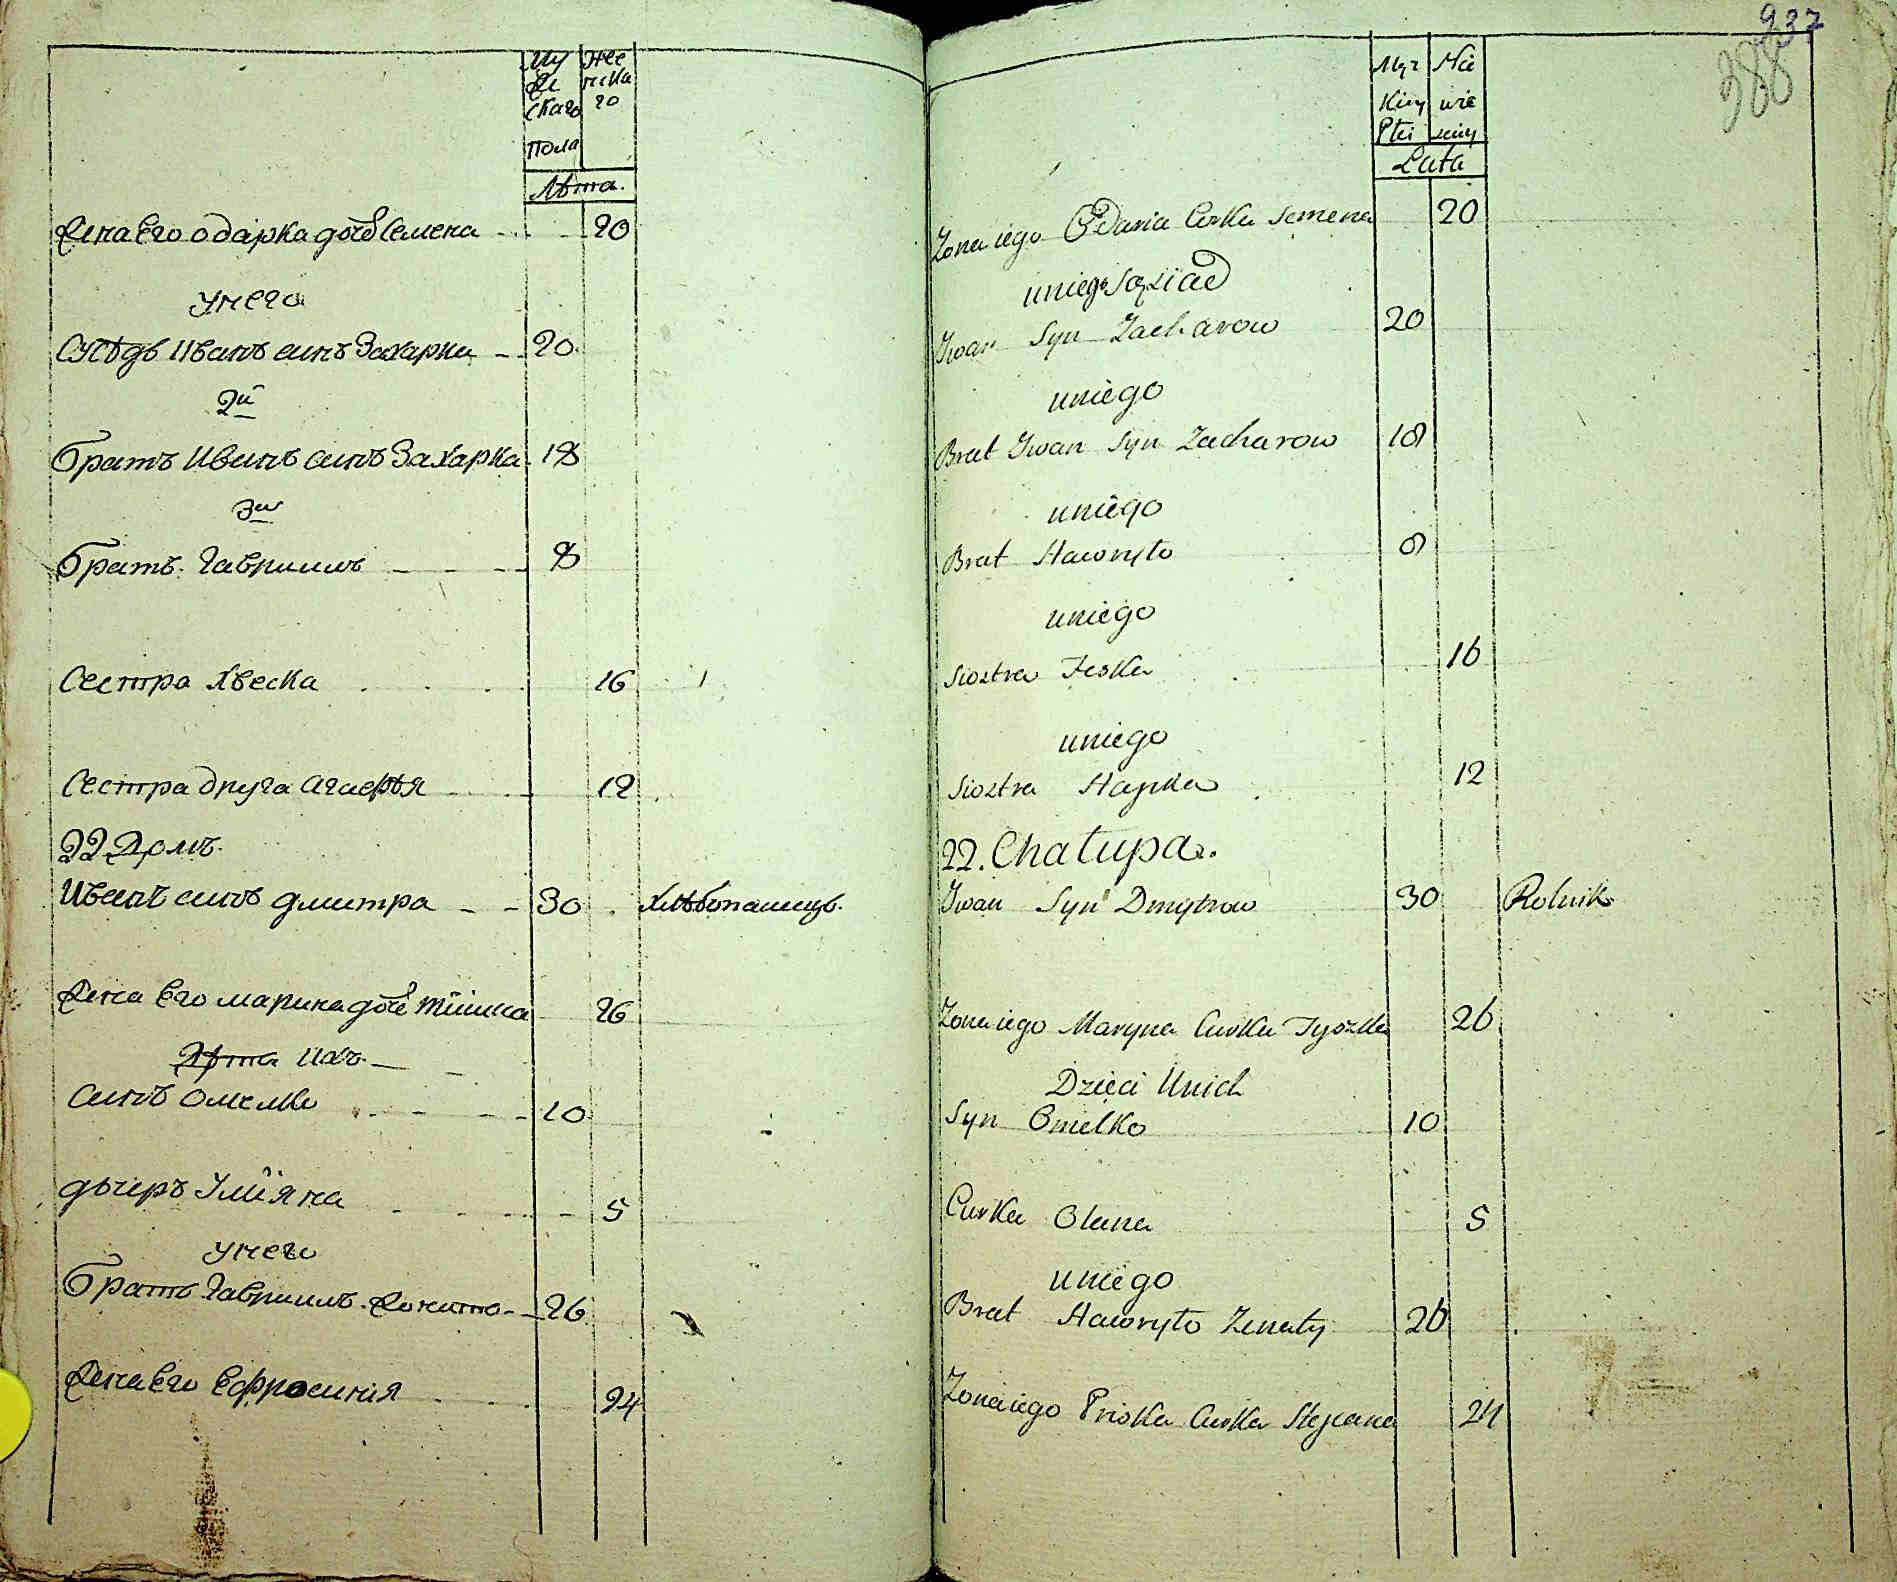 Му Же
же нска
скаго го
пола
Лѣта.
жена Его одарка дочь Семена 20
унего
Сусѣдъ Иванъ синъ Захарка 20
2й
братъ Иванъ синъ Захарка 18
3й
братъ Гавриилъ 8
Сестра Хвеска 16
Сестра друга агафѣя 12
22 Домъ.
Иванъ синъ дмитра 30 хлѣбопашецъ.
жена Его марина дочь тишка 26
Дѣти ихъ
синъ омелко 10
дочеръ Улïяна 5
унего
братъ Гавриилъ жонато 26
жена Его Ефросиния 24
937
388
Męz Nie
kiey wie
Płci sciey
Lata
Zona iego Odaria Curka Semena 20
uniego Sąsiad
Jwan Syn Zacharow 20
uniego
Brat Jwan Syn Zacharow 18
uniego
Brat Hawryło 8
uniego
Siostra Feska 16
uniego
Siostra Hapka 12
22. Chałupa.
Jwan Syn Dmytrow 30 Rolnik
Zona iego Maryna Curka Tyszka 26
Dzieci Unich
Syn Omelko 10
Curka Olana 5
uniego
Brat Hawryło Zonaty 26
Zona iego Priska Curka Stepana 24